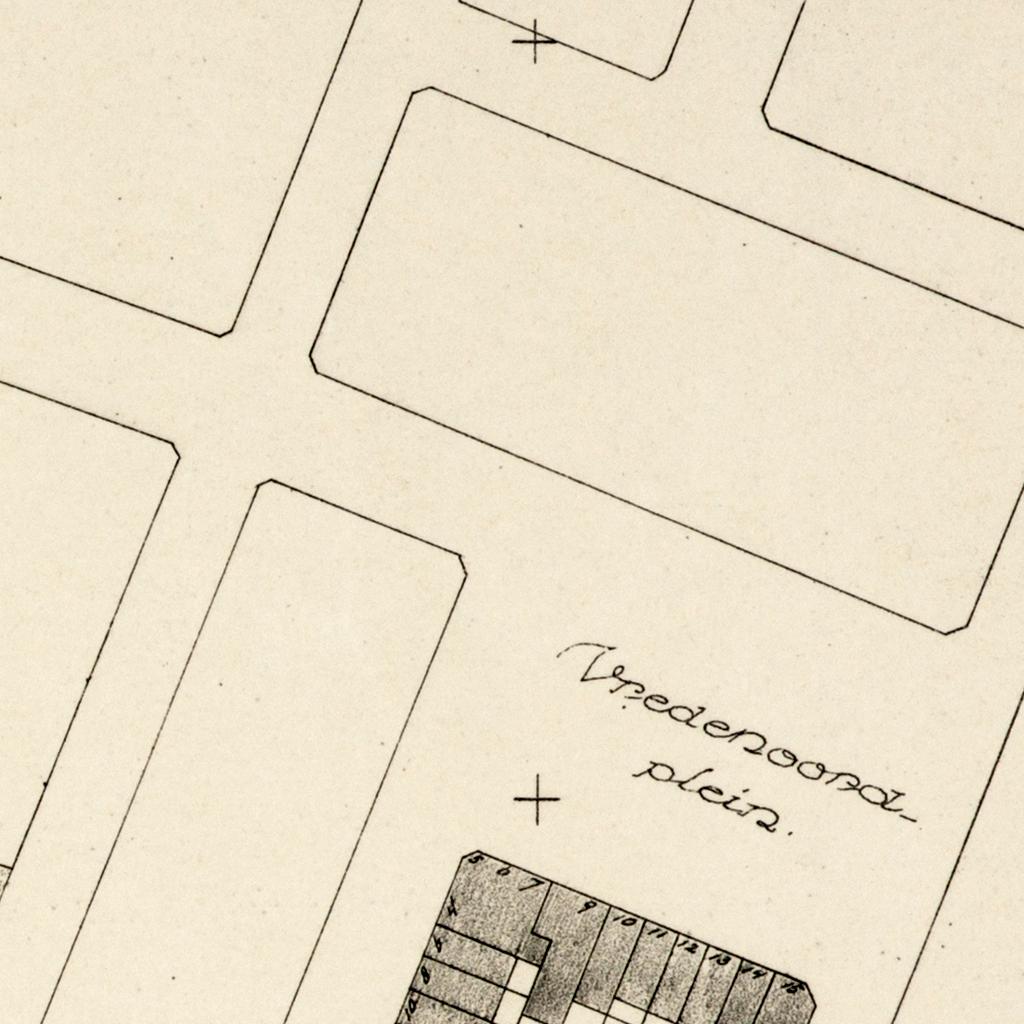 Vredenoord-
plein.
5 6 7 9 10 11 12 13 14 15
4
6
8
10